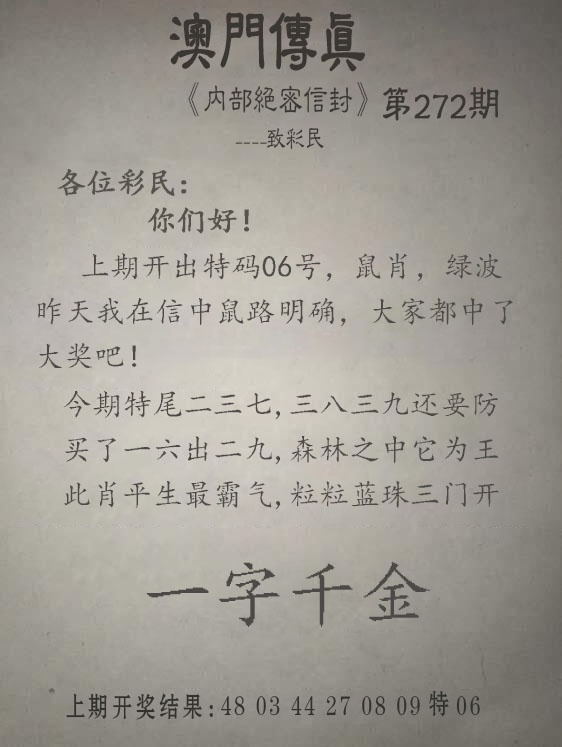 澳門傳真
《内部絕密信封》第272期
----致彩民
各位彩民：
你们好！
上期开出特码06号，鼠肖，绿波
昨天我在信中鼠路明确，大家都中了
大奖吧！
今期特尾二三七,三八三九还要防
买了一六出二九,森林之中它为王
此肖平生最霸气,粒粒蓝珠三门开
一字千金
上期开奖结果:48 03 44 27 08 09 特 06